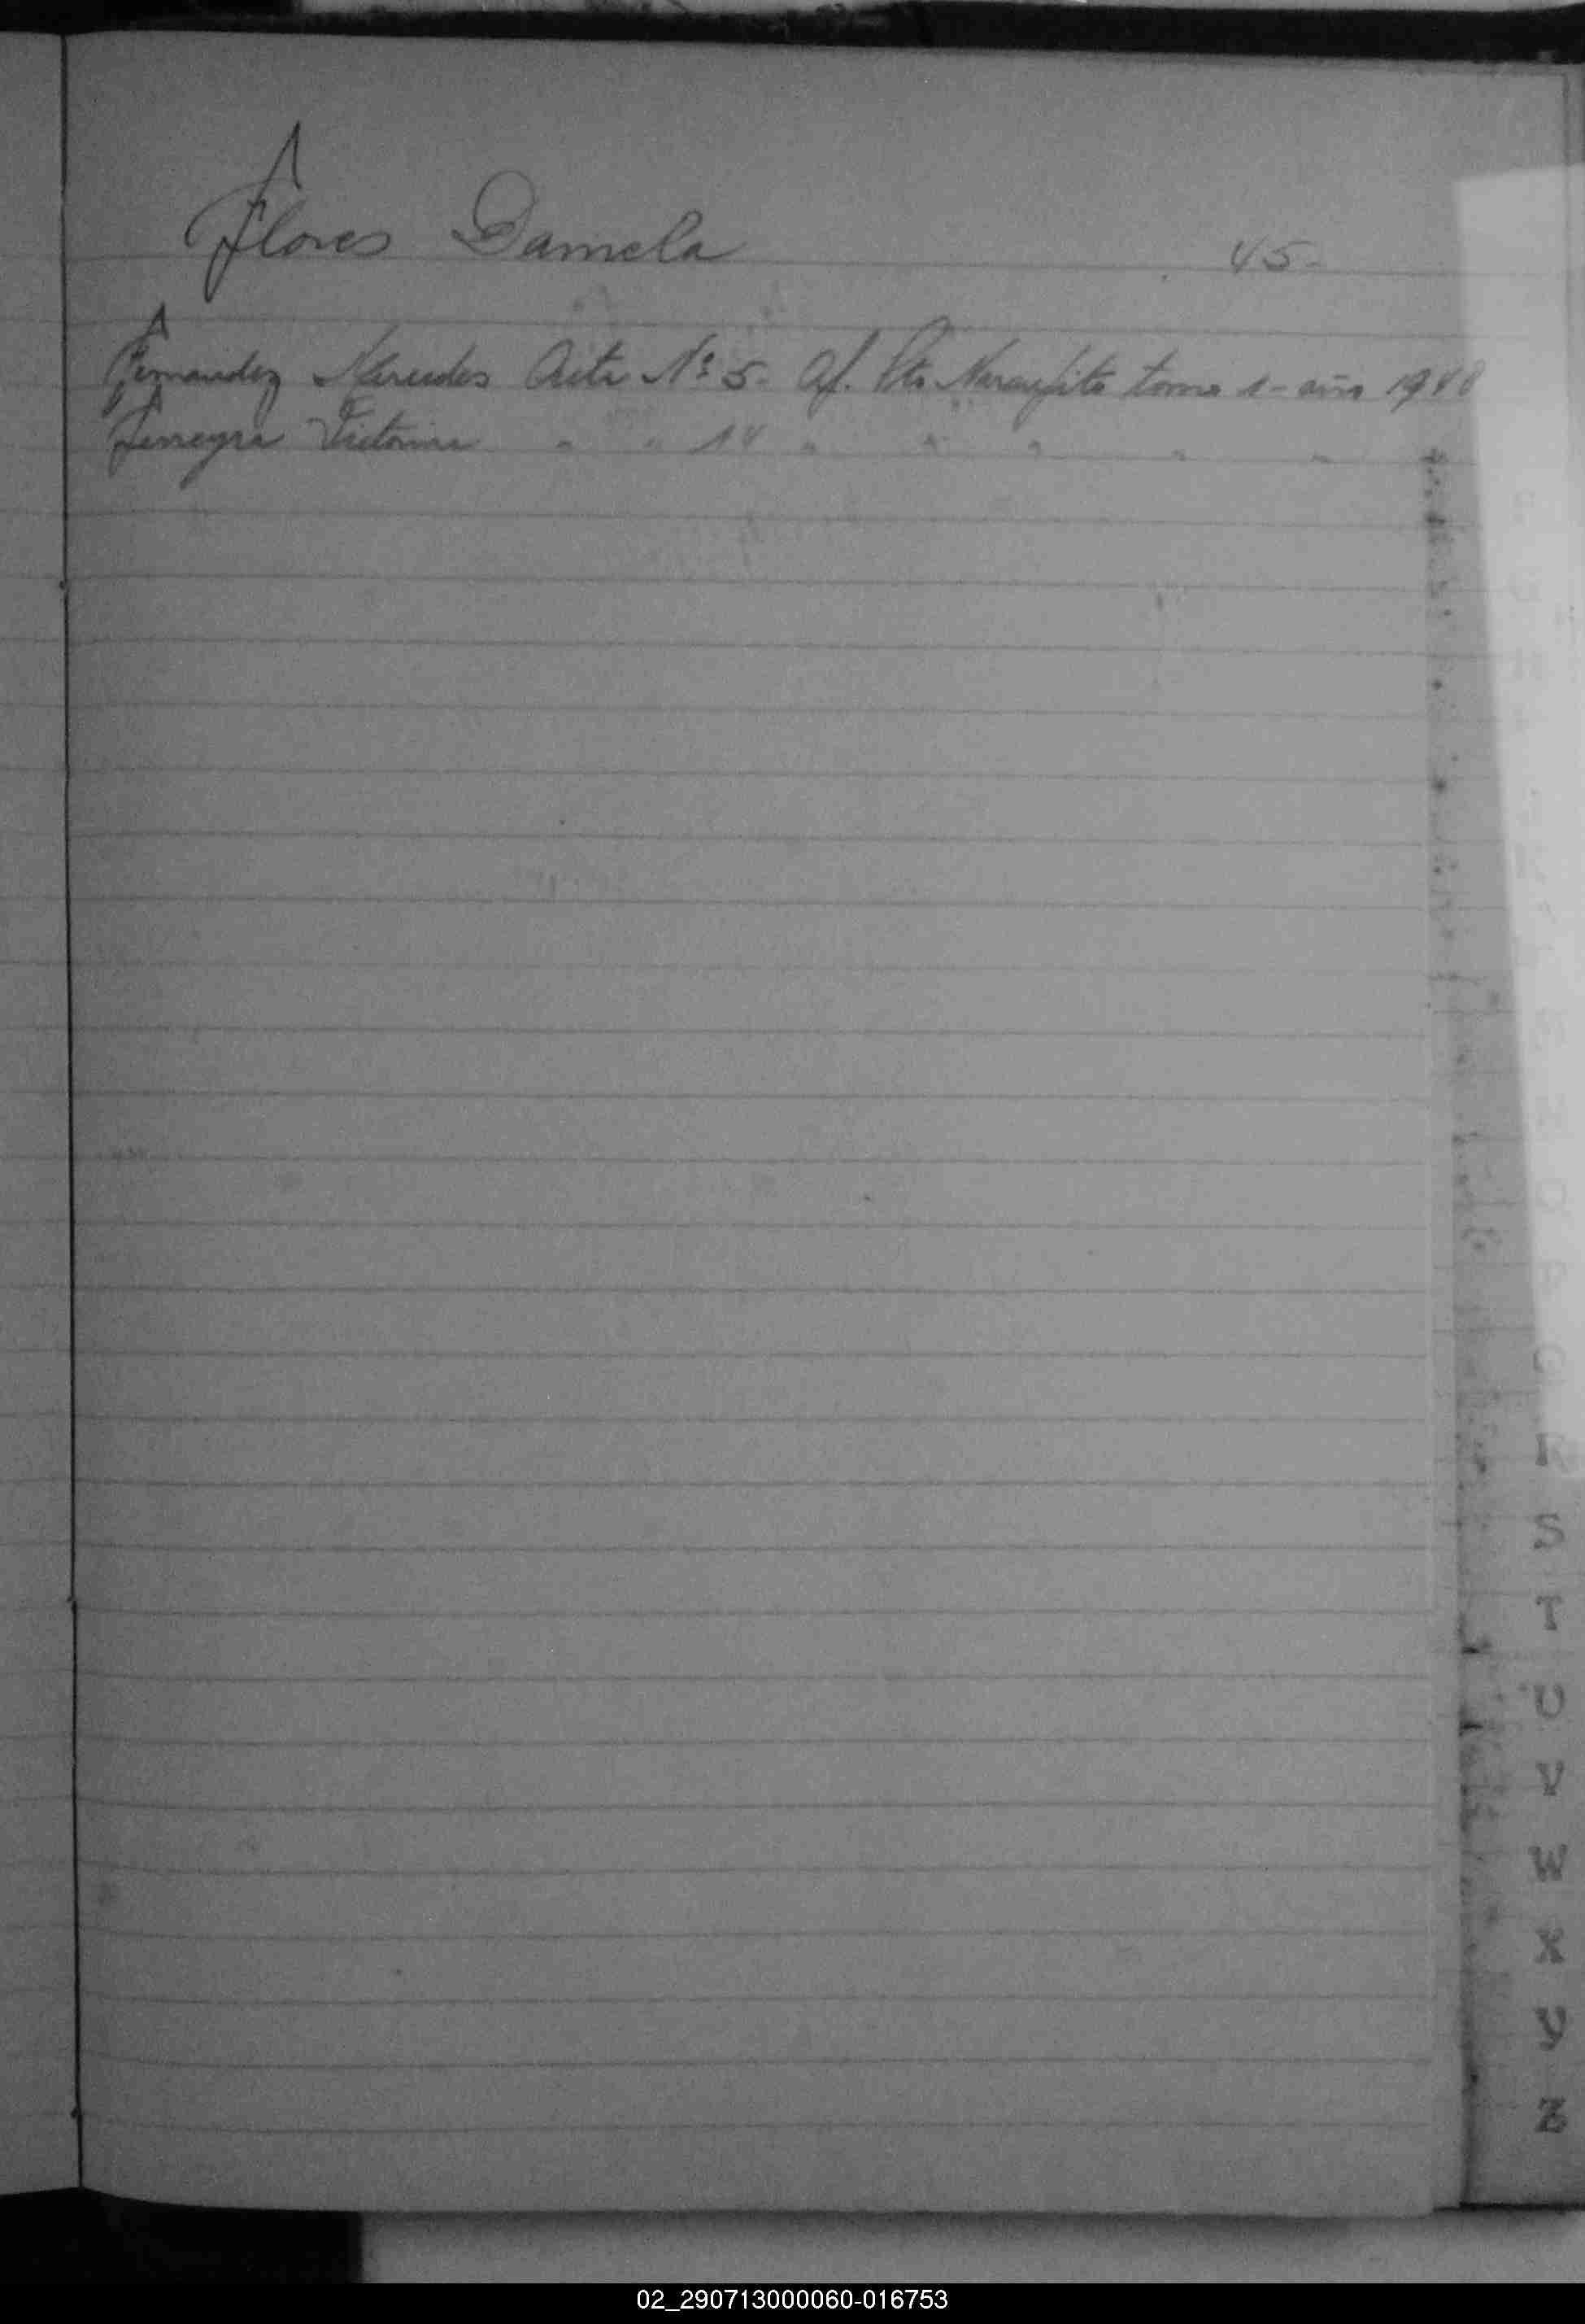 Flores Damela 45-
Fernandez Mercedes Acta Nº 5- Of. Pto Naranjito tomo 1- año 1948
Ferreyra Victorina " " 14 " " " " "
R
S
T
U
V
W
X
Y
Z
02_290713000060-016753